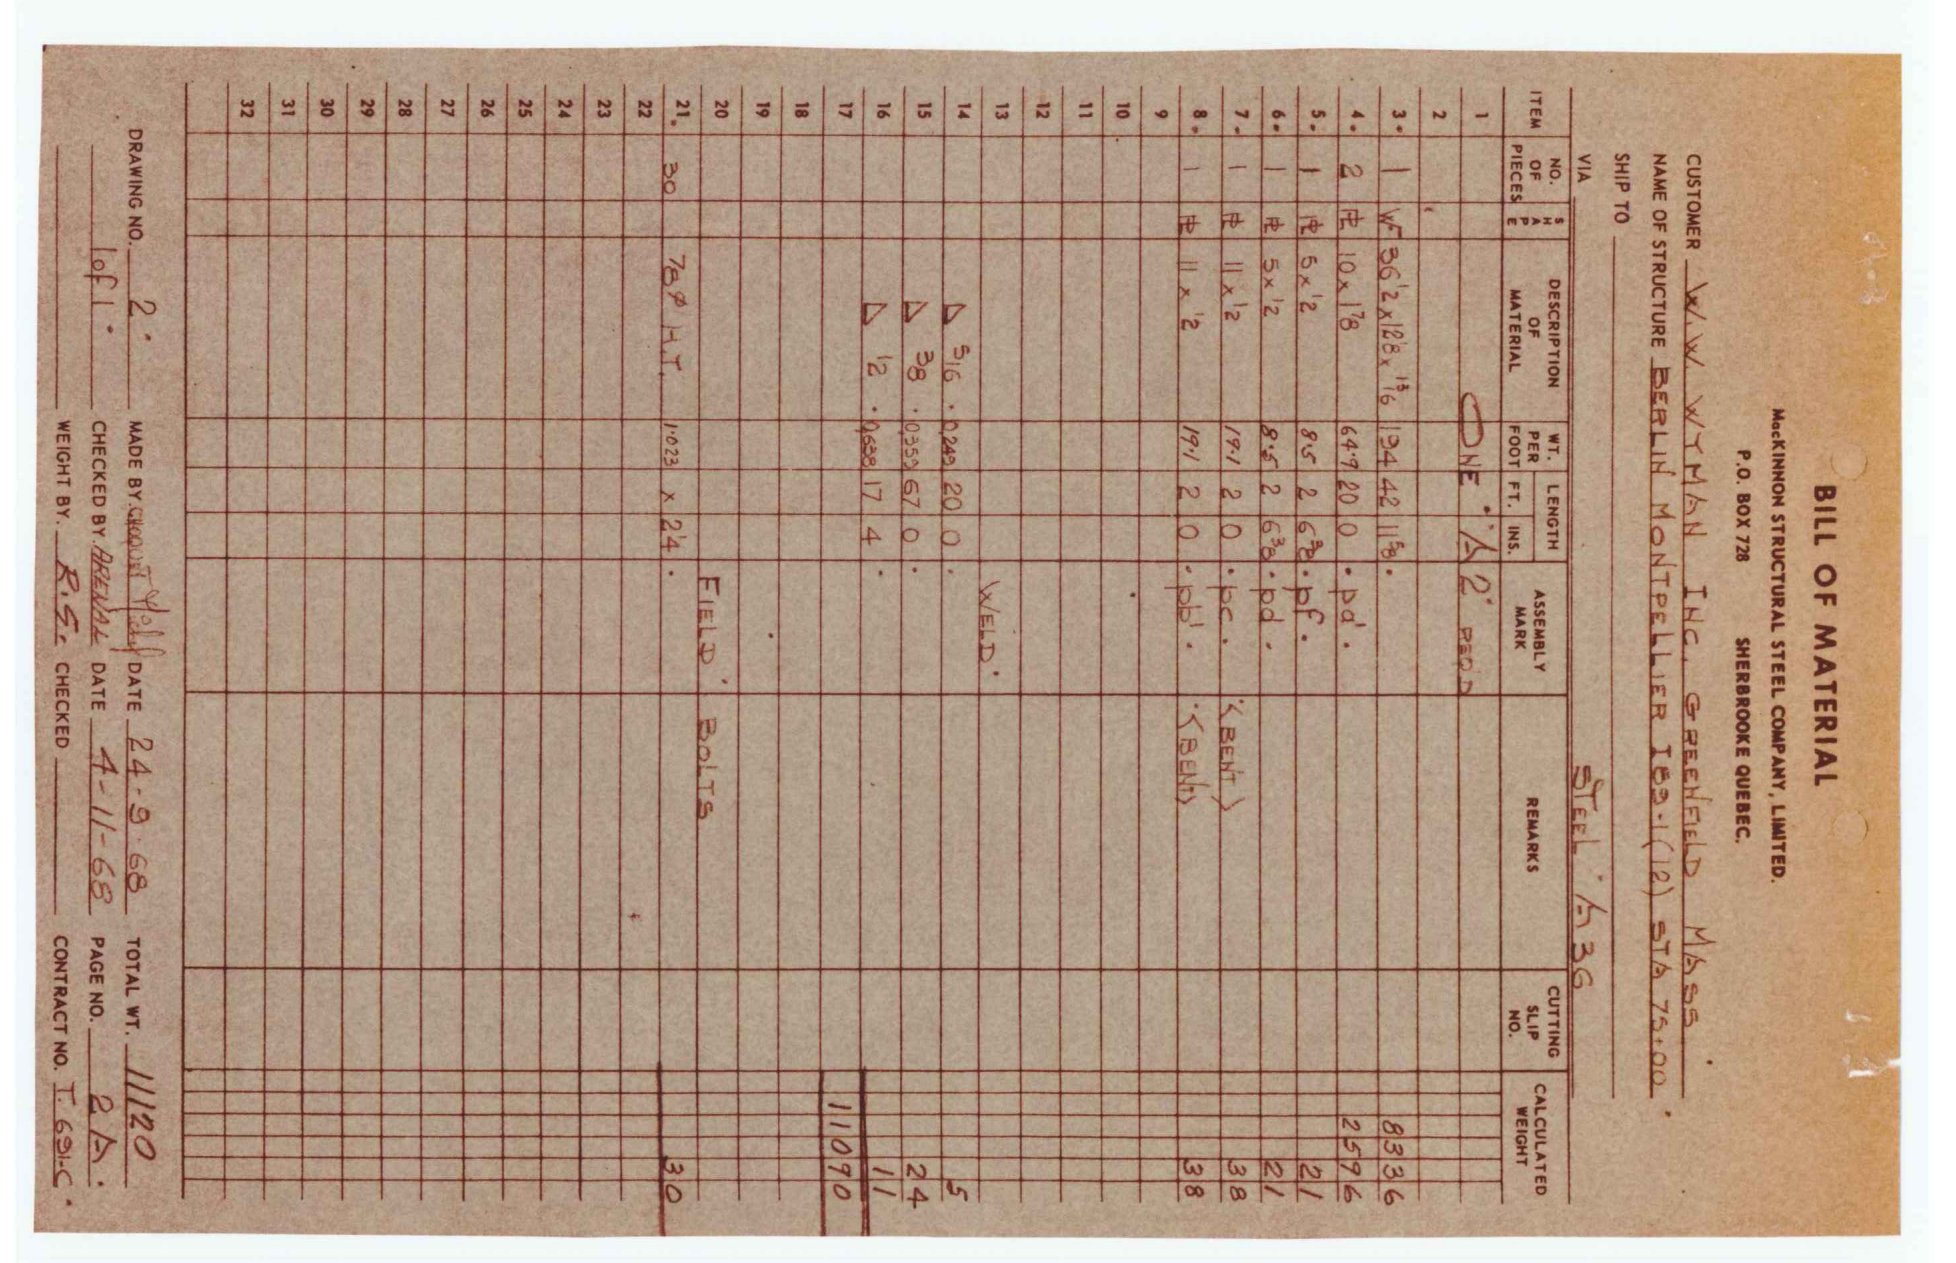 BILL OF MATERIAL
MacKINNON STRUCTURAL STEEL COMPANY, LIMITED.
P.O. BOX 728 SHERBROOKE QUEBEC.
CUSTOMER W.W. WYMAN INC. GREENFIELD MASS.
NAME OF STRUCTURE BERLIN MONTPELLIER I89-1(12) STA 75+00.
SHIP TO
VIA STEEL A36
ITEM NO. OF PIECES SHAPE DESCRIPTION OF MATERIAL WT. PER FOOT LENGTH FT. INS. ASSEMBLY MARK REMARKS CUTTING SLIP NO. CALCULATED WEIGHT
1 ONE A2 REQ'D
2
3. 1 W 36 1/2 x 12 1/8 x 13/16 194 42 11 5/8. 8336
4. 2 PL 10 x 1 7/8 64.9 20 0 . pa'. 2596
5. 1 PL 5 x 1/2 8.5 2 6 3/8 . pf. 21
6. 1 PL 5 x 1/2 8.5 2 6 3/8 . pd. 21
7. 1 PL 11 x 1/2 19.1 2 0 . pc. (BENT) 38
8. 1 PL 11 x 1/2 19.1 2 0 . pb'. (BENT) 38
9
10
11
12
13 WELD.
14 △ 5/16 . 0.249 20 0 . 5
15 △ 3/8 . 0.359 67 0 . 24
16 △ 1/2 . 0.638 17 4 . 11
17 11090
18
19
20 FIELD BOLTS
21. 30 7/8 ø H.T. 1.023 x 2 1/4 . 30
22
23
24
25
26
27
28
29
30
31
32
DRAWING NO. 2. MADE BY. DATE 24-9-68 TOTAL WT. 11120
1 of 1. CHECKED BY. ARENAL DATE 4-11-68 PAGE NO. 2A.
WEIGHT BY. R.S. CHECKED CONTRACT NO. T.691-C.